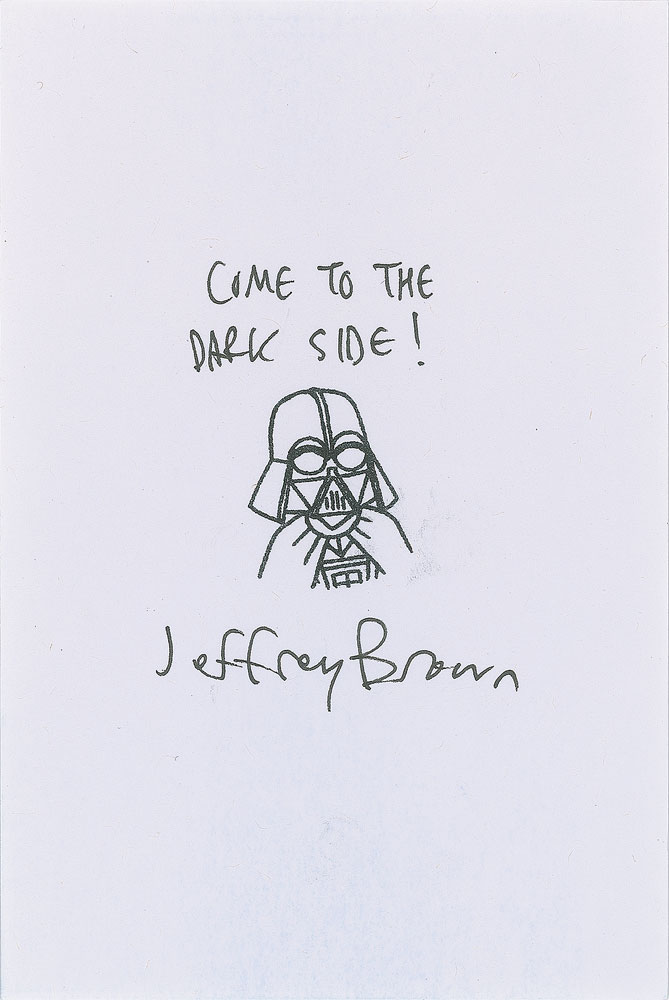 COME TO THE
DARK SIDE!
Jeffrey Brown